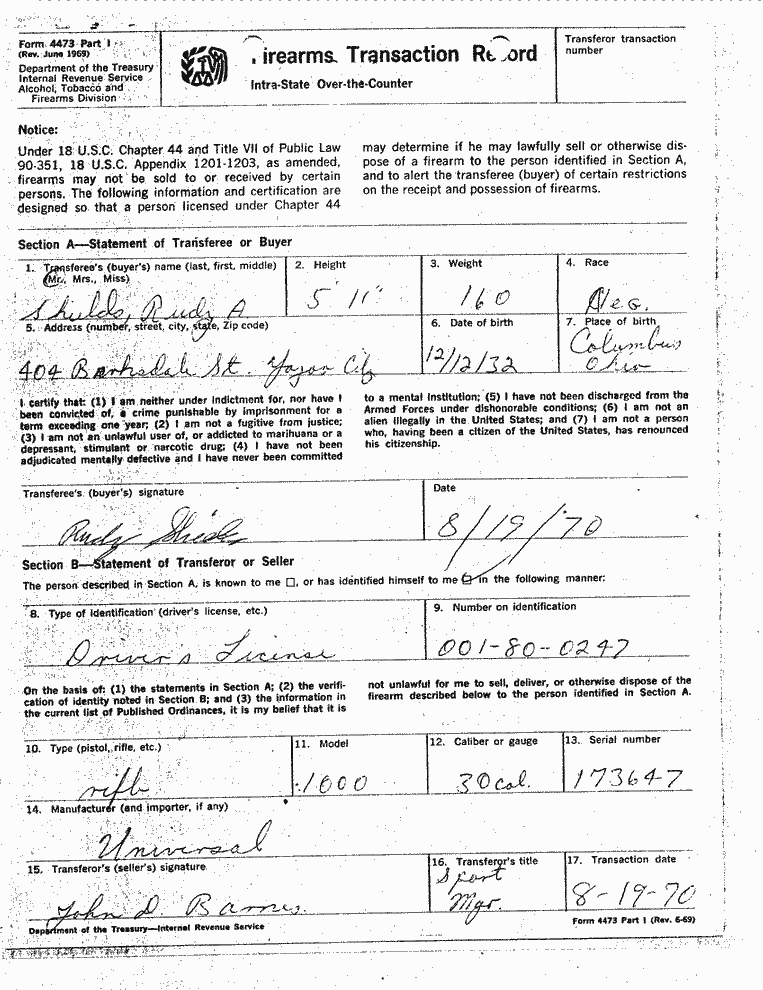 Form 4473 Part I
(Rev. June 1969)
Department of the Treasury
Internal Revenue Service
Alcohol, Tobacco and
Firearms Division
Firearms Transaction Record
Intra-State Over-the-Counter
Transferor transaction
number
Notice:
Under 18 U.S.C. Chapter 44 and Title VII of Public Law
90-351, 18 U.S.C. Appendix 1201-1203, as amended,
firearms may not be sold to or received by certain
persons. The following information and certification are
designed so that a person licensed under Chapter 44
may determine if he may lawfully sell or otherwise dis-
pose of a firearm to the person identified in Section A,
and to alert the transferee (buyer) of certain restrictions
on the receipt and possession of firearms.
Section A—Statement of Transferee or Buyer
1. Transferee's (buyer's) name (last, first, middle)
(Mr., Mrs., Miss)
Shields, Rudy A
2. Height
5' 11"
3. Weight
160
4. Race
Neg.
5. Address (number, street, city, state, Zip code)
404 Barksdale St. Yazoo City
6. Date of birth
12/12/32
7. Place of birth
Columbus
Ohio
I certify that: (1) I am neither under indictment for, nor have I
been convicted of, a crime punishable by imprisonment for a
term exceeding one year; (2) I am not a fugitive from justice;
(3) I am not an unlawful user of, or addicted to marihuana or a
depressant, stimulant or narcotic drug; (4) I have not been
adjudicated mentally defective and I have never been committed
to a mental institution; (5) I have not been discharged from the
Armed Forces under dishonorable conditions; (6) I am not an
alien illegally in the United States; and (7) I am not a person
who, having been a citizen of the United States, has renounced
his citizenship.
Transferee's (buyer's) signature
Rudy Shields
Date
8/19/70
Section B—Statement of Transferor or Seller
The person described in Section A, is known to me ☐, or has identified himself to me ☑ in the following manner:
8. Type of identification (driver's license, etc.)
Driver's License
9. Number on identification
001-80-0247
On the basis of: (1) the statements in Section A; (2) the verifi-
cation of identity noted in Section B; and (3) the information in
the current list of Published Ordinances, it is my belief that it is
not unlawful for me to sell, deliver, or otherwise dispose of the
firearm described below to the person identified in Section A.
10. Type (pistol, rifle, etc.)
rifle
11. Model
1000
12. Caliber or gauge
30 cal.
13. Serial number
173647
14. Manufacturer (and importer, if any)
Universal
15. Transferor's (seller's) signature
John D Barnes
16. Transferor's title
Sport
Mgr.
17. Transaction date
8-19-70
Department of the Treasury—Internal Revenue Service
Form 4473 Part I (Rev. 6-69)